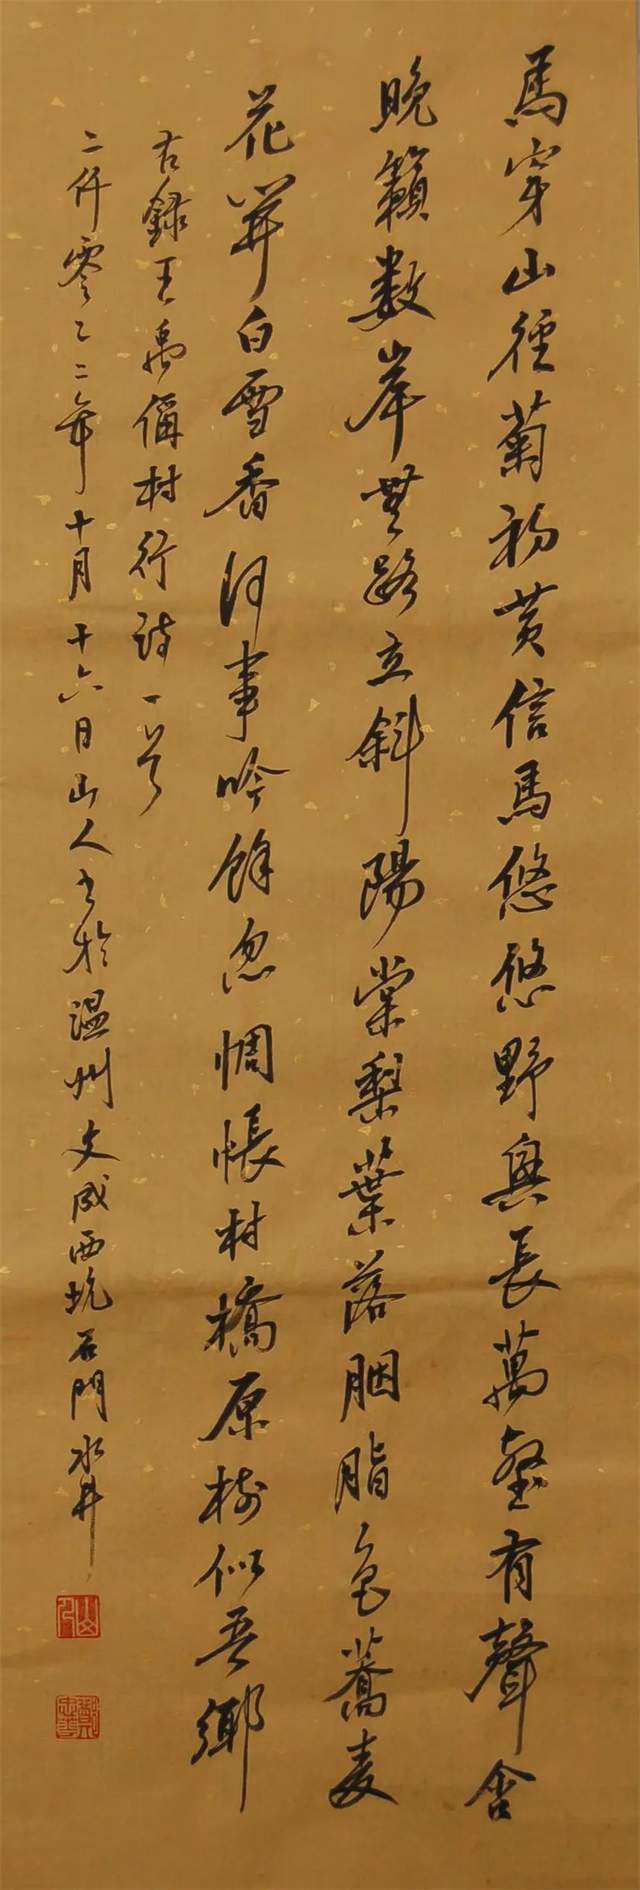 馬穿山徑菊初黃信馬悠悠野興長萬壑有聲含
晚籟數峯無語立斜陽棠梨葉落胭脂色蕎麦
花開白雪香何事吟餘忽惆悵村橋原樹似吾鄉
右録王禹偁村行詩一首
二仟零乙二年十月十六日山人書於温州文成西坑石門水井
山人